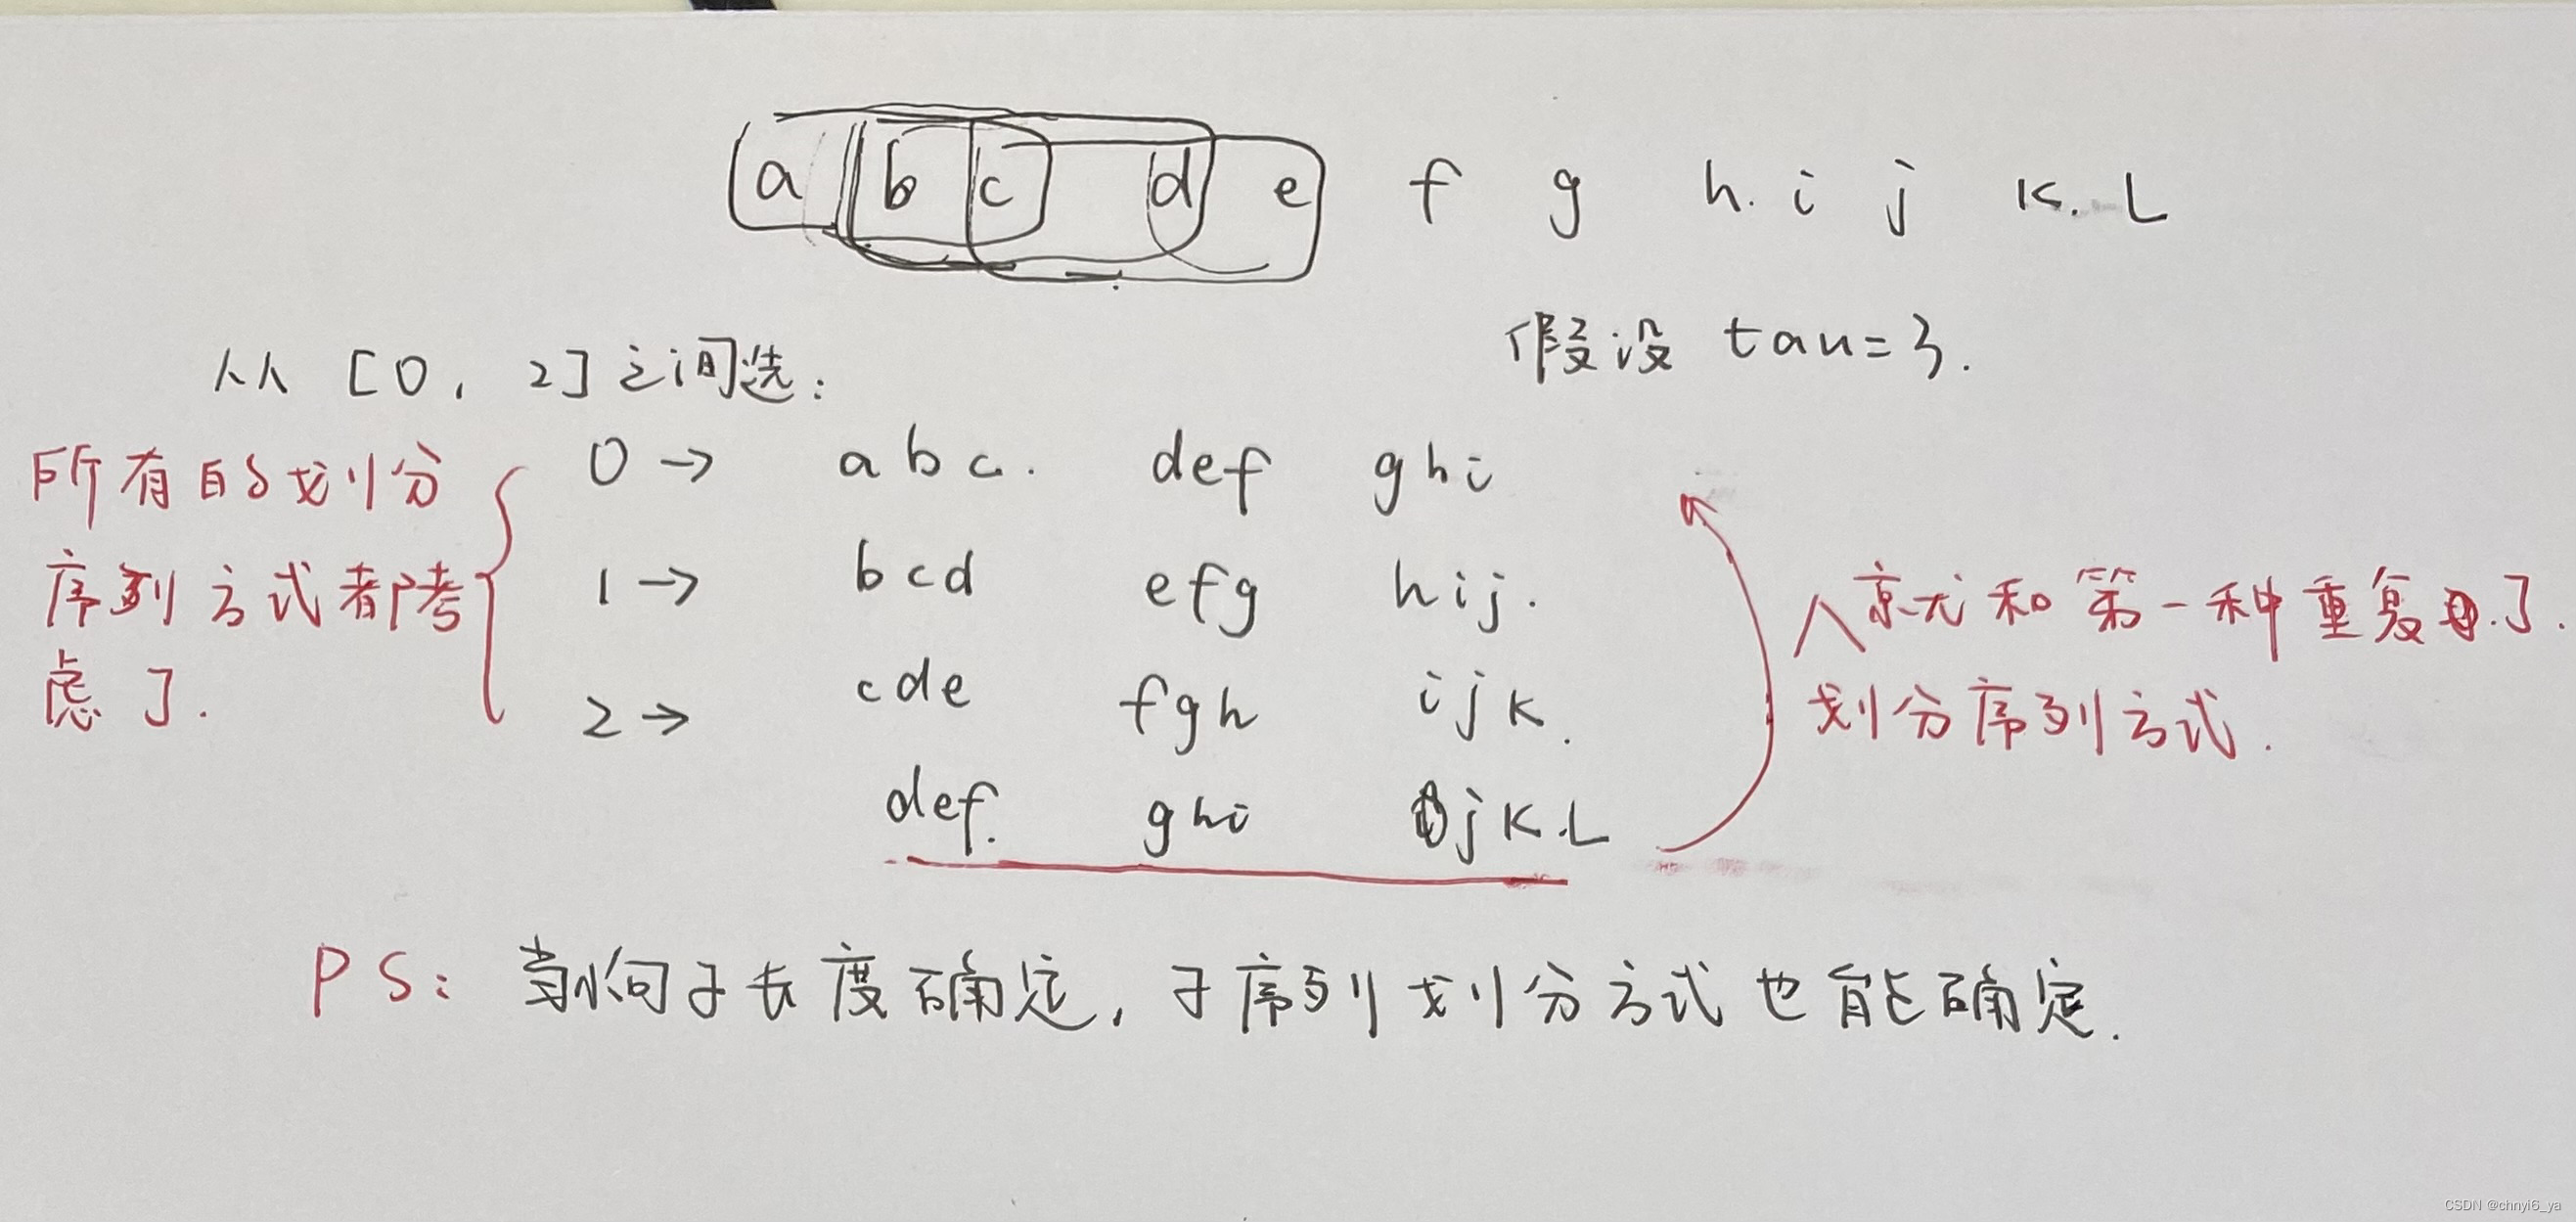 a b c d e f g h. i j k. L
假设 tau=3.
从 [0, 2] 之间选:
所有的划分
序列方式都考
虑了.
0 → a b c. def ghi
1 → bcd efg hij.
2 → cde fgh ijk.
def. ghi jK.L
和第一种重复了.
划分序列方式.
PS: 当句子长度确定, 子序列划分方式也能确定.
CSDN @chnyi6_ya